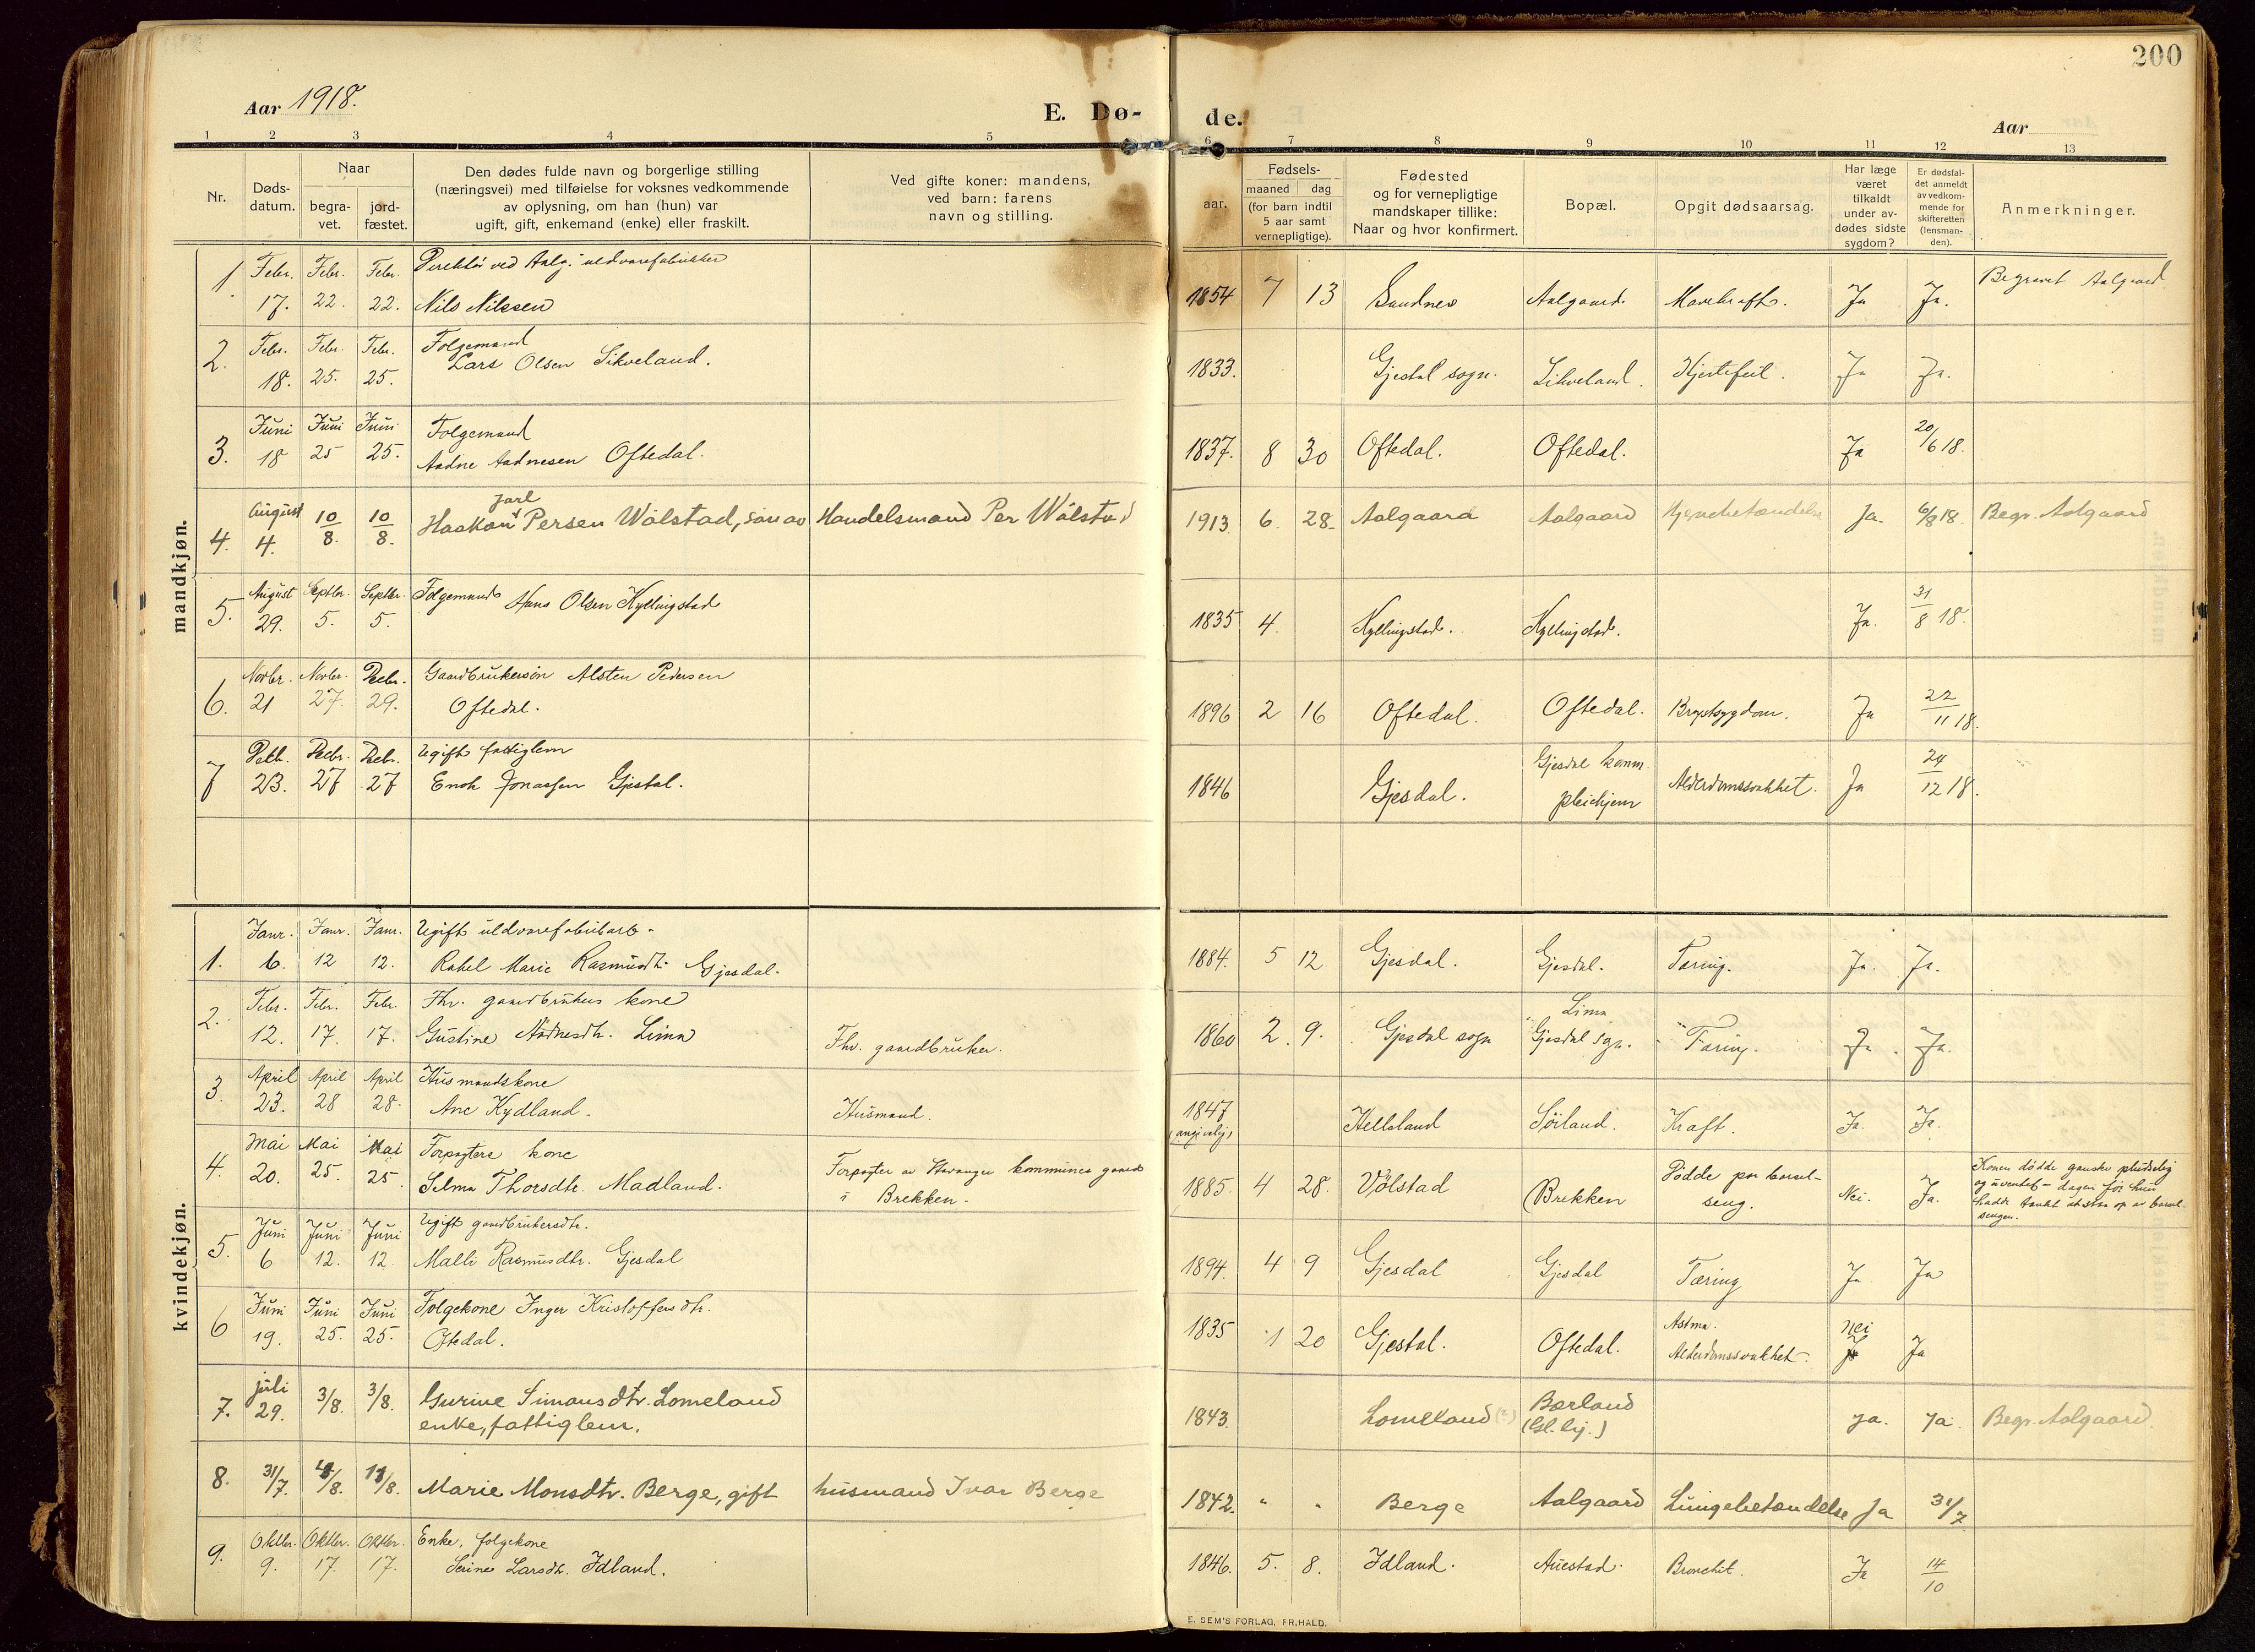 200
Aar 1918.
E. Dø-
de.
Aar
1 2 3 4 5 6 7 8 9 10 11 12 13
Nr.
Døds-
datum.
Naar
begra-
vet.
jord-
fæstet.
Den dødes fulde navn og borgerlige stilling
(næringsvei) med tilføielse for voksnes vedkommende
av oplysning, om han (hun) var
ugift, gift, enkemand (enke) eller fraskilt.
Ved gifte koner: mandens,
ved barn: farens
navn og stilling.
Fødsels-
aar.
maaned
dag
(for barn indtil
5 aar samt
vernepligtige).
Fødested
og for vernepligtige
mandskaper tillike:
Naar og hvor konfirmert.
Bopæl.
Opgit dødsaarsag.
Har læge
været
tilkaldt
under av-
dødes sidste
sygdom?
Er dødsfal-
det anmeldt
av vedkom-
mende for
skifteretten
(lensman-
den).
Anmerkninger.
mandkjøn.
1. Febr. 17. Febr. 22. Febr. 22. Direktør ved Aalg. uldvarefabrikker
Nils Nilssen 1854 7 13 Sandnes Aalgaard. Mavekraft. Ja Ja. Begravet Aalgaard.
2. Febr. 18. Febr. 25. Febr. 25. Folgemand
Lars Olsen Sikveland. 1833. Gjestal sogn. Sikveland. Hjertefeil. Ja Ja.
3. Juni 18 Juni 25 Juni 25. Folgemand
Aadne Aadnesen Oftedal. 1837. 8 30 Oftedal. Oftedal. Ja 20/6 18.
4. August 4. 10/8. 10/8. Haakon Jarl Persen Wålstad, søn av Handelsmand Per Wålstad 1913 6. 28. Aalgaard Aalgaard Hjernebetændelse Ja. 6/8 18. Begr. Aalgaard
5. August 29. Septbr. 5. Septbr. 5. Folgemand Hans Olsen Kyllingstad 1835 4. Kyllingstad. Kyllingstad. Ja. 31/8 18.
6. Novbr. 21 Novbr. 27. Decbr. 29. Gaardbrukersøn Alsten Pedersen
Oftedal. 1896 2 16 Oftedal. Oftedal. Brystsygdom. Ja 22/11 18.
7 Decbr. 23. Decbr. 27 Decbr. 27 Ugift fattiglem
Enok Jonassen Gjestal. 1846 Gjesdal. Gjesdal komm.
pleiehjem Alderdomssvakhet. Ja 24/12 18.
kvindekjøn.
1. Janr. 6. Janr. 12 Janr. 12. Ugift uldvarefabrikarb.
Rakel Marie Rasmusdtr. Gjesdal. 1884. 5 12 Gjesdal. Gjesdal. Tæring. Ja. Ja.
2. Febr. 12. Febr. 17. Febr. 17. Fhv. gaardbrukers kone
Gustine Aadnesdtr. Lima Fhv. gaardbruker. 1860 2. 9. Gjesdal sogn Lima
Gjesdal sgn. Tæring. Ja. Ja.
3. April 23. April 28 April 28. Husmandskone
Ane Kydland. Husmand. 1847
(angivelig) Helleland Sørland. Kraft. Ja. Ja.
4. Mai 20. Mai 25. Mai 25. Forpagters kone
Selma Thorsdtr. Madland. Forpagter av Stavanger kommunes gaard
i Brekken. 1885. 4 28. Vølstad Brekken Dødde paa barsel-
seng. Nei. Ja. Konen dødde ganske pludselig
og uventet – dagen før hun
hadde tænkt at staa op av barsel-
sengen.
5. Juni 6 Juni 12. Juni 12. Ugift gaardbrukersdtr.
Malli Rasmusdtr. Gjesdal 1894. 4 9 Gjesdal Gjesdal Tæring Ja Ja
6 Juni 19. Juni 25. Juni 25. Folgekone Inger Kristoffersdtr.
Oftedal. 1835 1 20 Gjestal. Oftedal. Astma.
Alderdomssvakhet. nei Ja
7. juli 29. 3/8. 3/8. Gurine Simonsdtr. Lomeland
enke, fattiglem. 1843. Lomeland (?) Børland
ja. ja. Begr. Aalgaard.
8. 31/7. /8. /8. Marie Monsdtr. Berge, gift husmand Ivar Berge 1842. " " Berge Aalgaard Lungebetændelse Ja 31/7
9. Oktbr. 9. Oktbr. 17. Oktbr. 17. Enke, folgekone
Serine Larsdtr. Idland. 1846. 5. 8. Idland. Auestad. Bronchit. Ja 14/10
E. SEM'S FORLAG, FR.HALD.